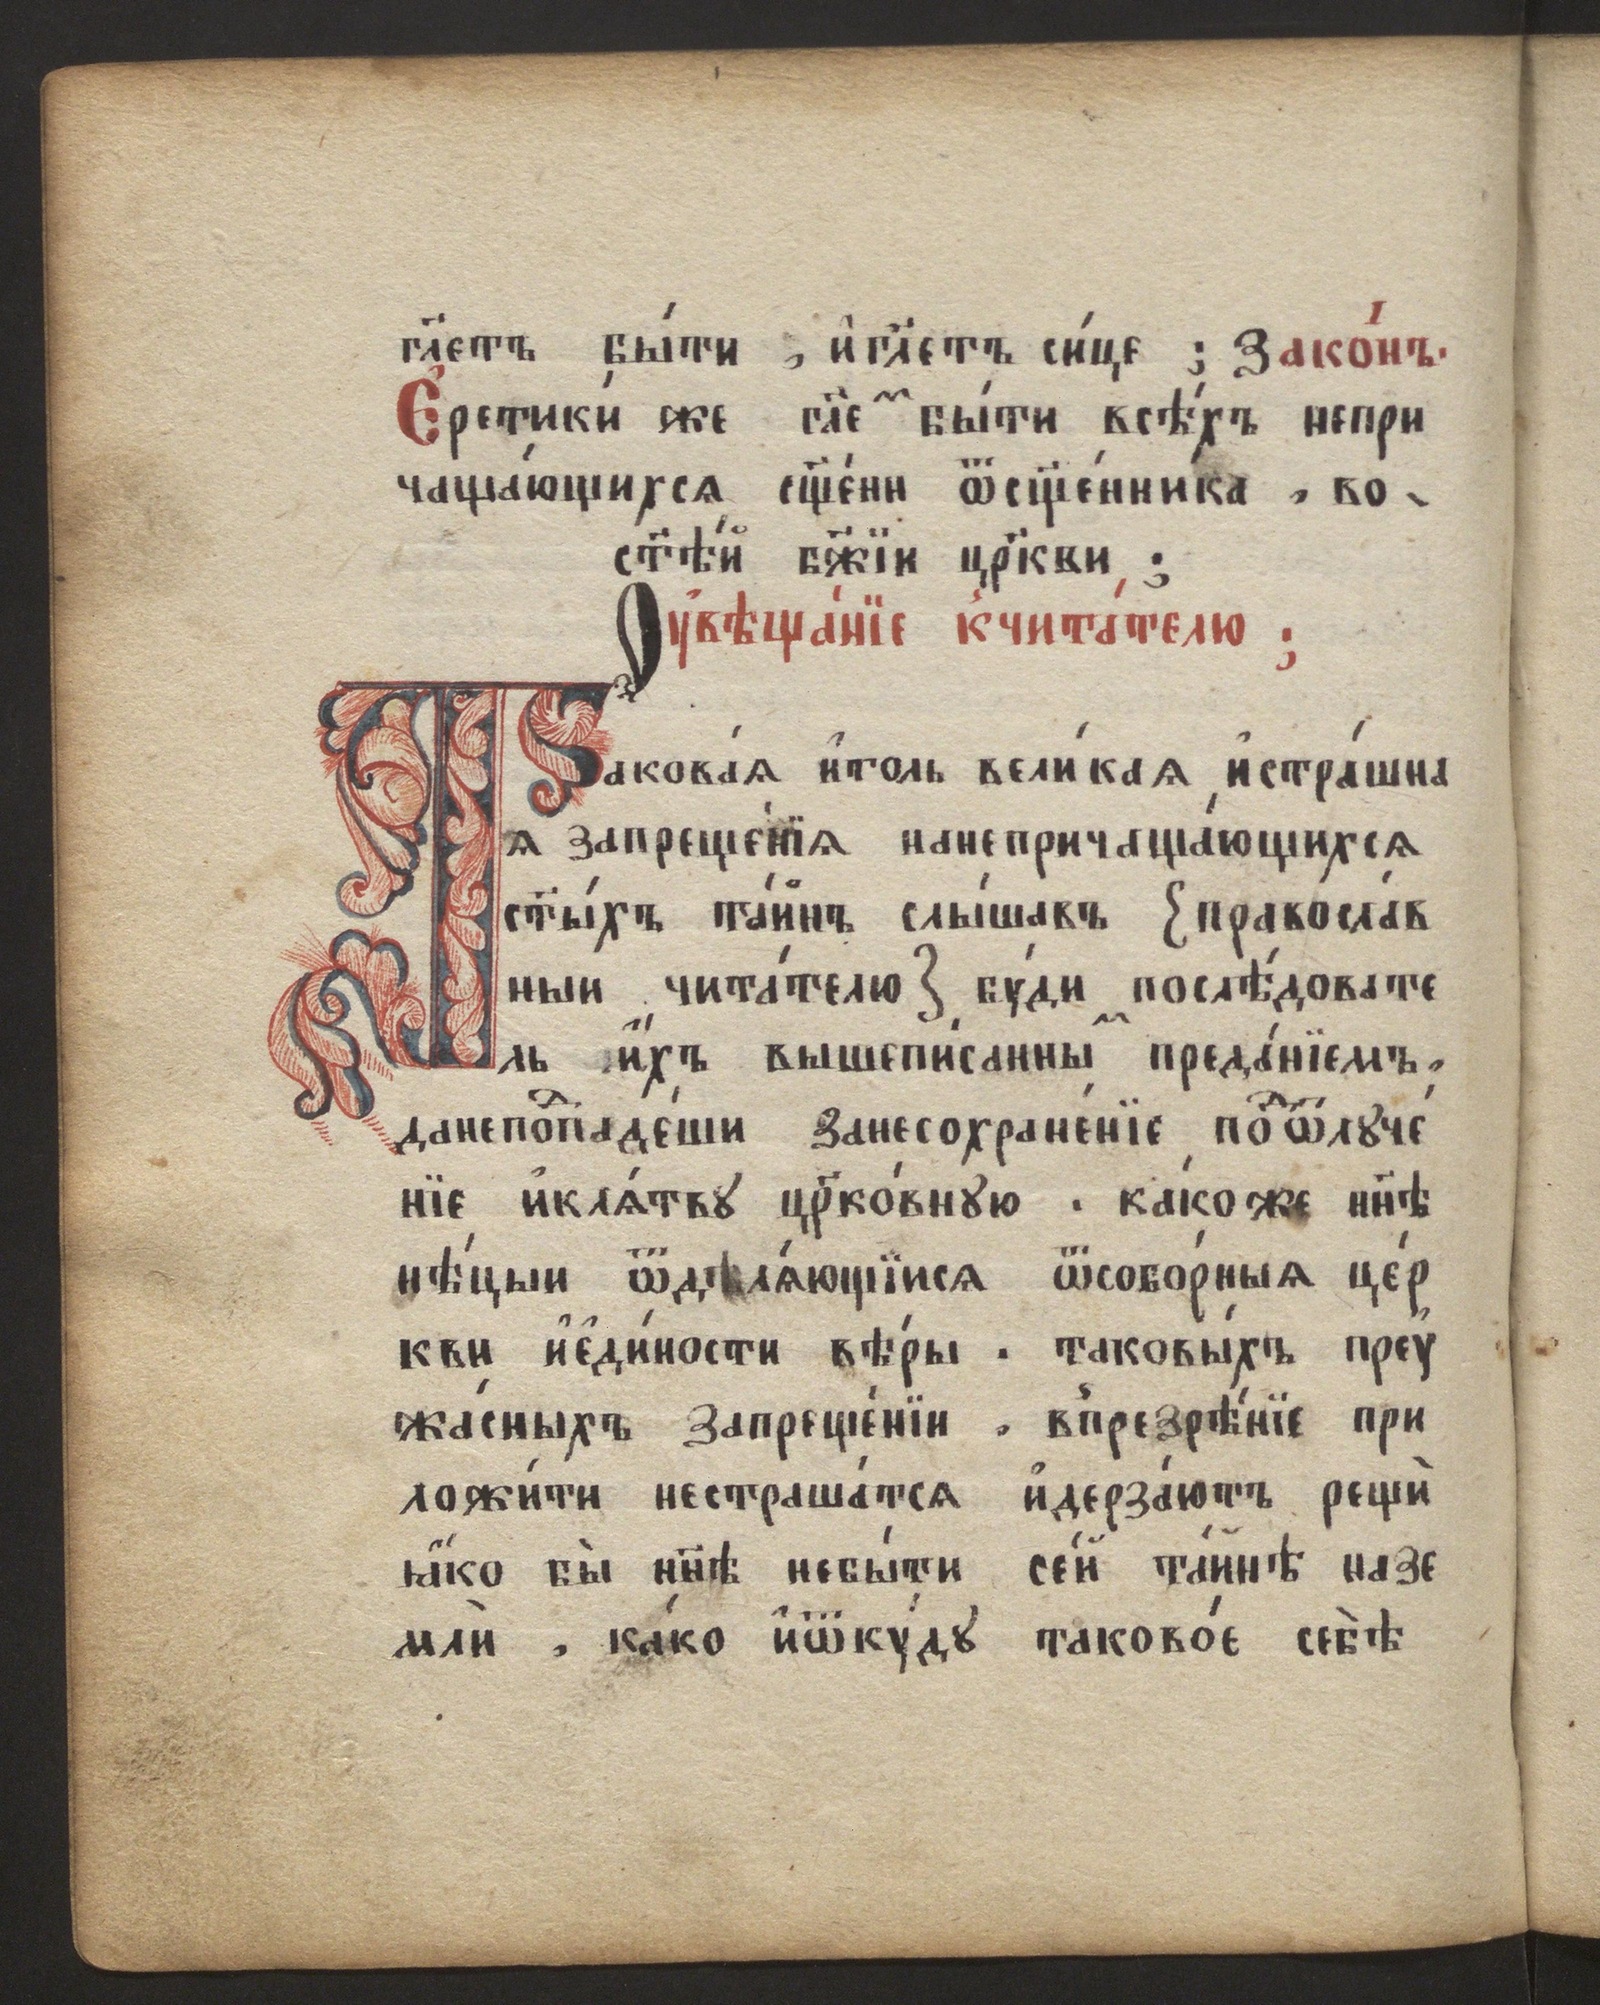 гл҃етъ бы́ти , и҆гл҃етъ си́це ; Зако́нъ·
Є҆ретики́ же гл҃еⷨ бы́ти всѣ́хъ непри
чаща́ющихсѧ сщ҃е́нн ѿсщ҃е́нника , во
ст҃ѣ́й бж҃їи цр҃кви ;
Оу҆вѣща́нїе к҆чита́телю ;
Такова́ѧ и҆толь вели́каѧ и҆стра́шна
ѧ запреще́нїѧ нанепричаща́ющихсѧ
ст҃ы́хъ та́йнъ слы́шавъ {правосла́в
ныи чита́телю} бу́ди послѣ́довате
ль и҆́хъ вышепи́санныⷨ преда́нїемъ ,
данепоⷣпаде́ши занесохране́нїе поⷣѿлꙋче́
нїе и҆клѧ́твꙋ цр҃ко́внꙋю . ка́ко же нн҃ѣ
нѣ́цыи ѿдѣлѧ́ющїисѧ ѿсобо́рныѧ це́р
кви и҆є҆ди́ности вѣ́ры . таковы́хъ преу҆
жа́сныхъ запреще́нїи , в҆презрѣ́нїе при
ложи́ти нестраша́тсѧ и҆дерза́ютъ рещѝ
ꙗ҆́ко бы̀ нн҃ѣ небы́ти се́й та́йнѣ назе
млѝ , ка́ко и҆ѿку́дꙋ таково́е себѣ̀